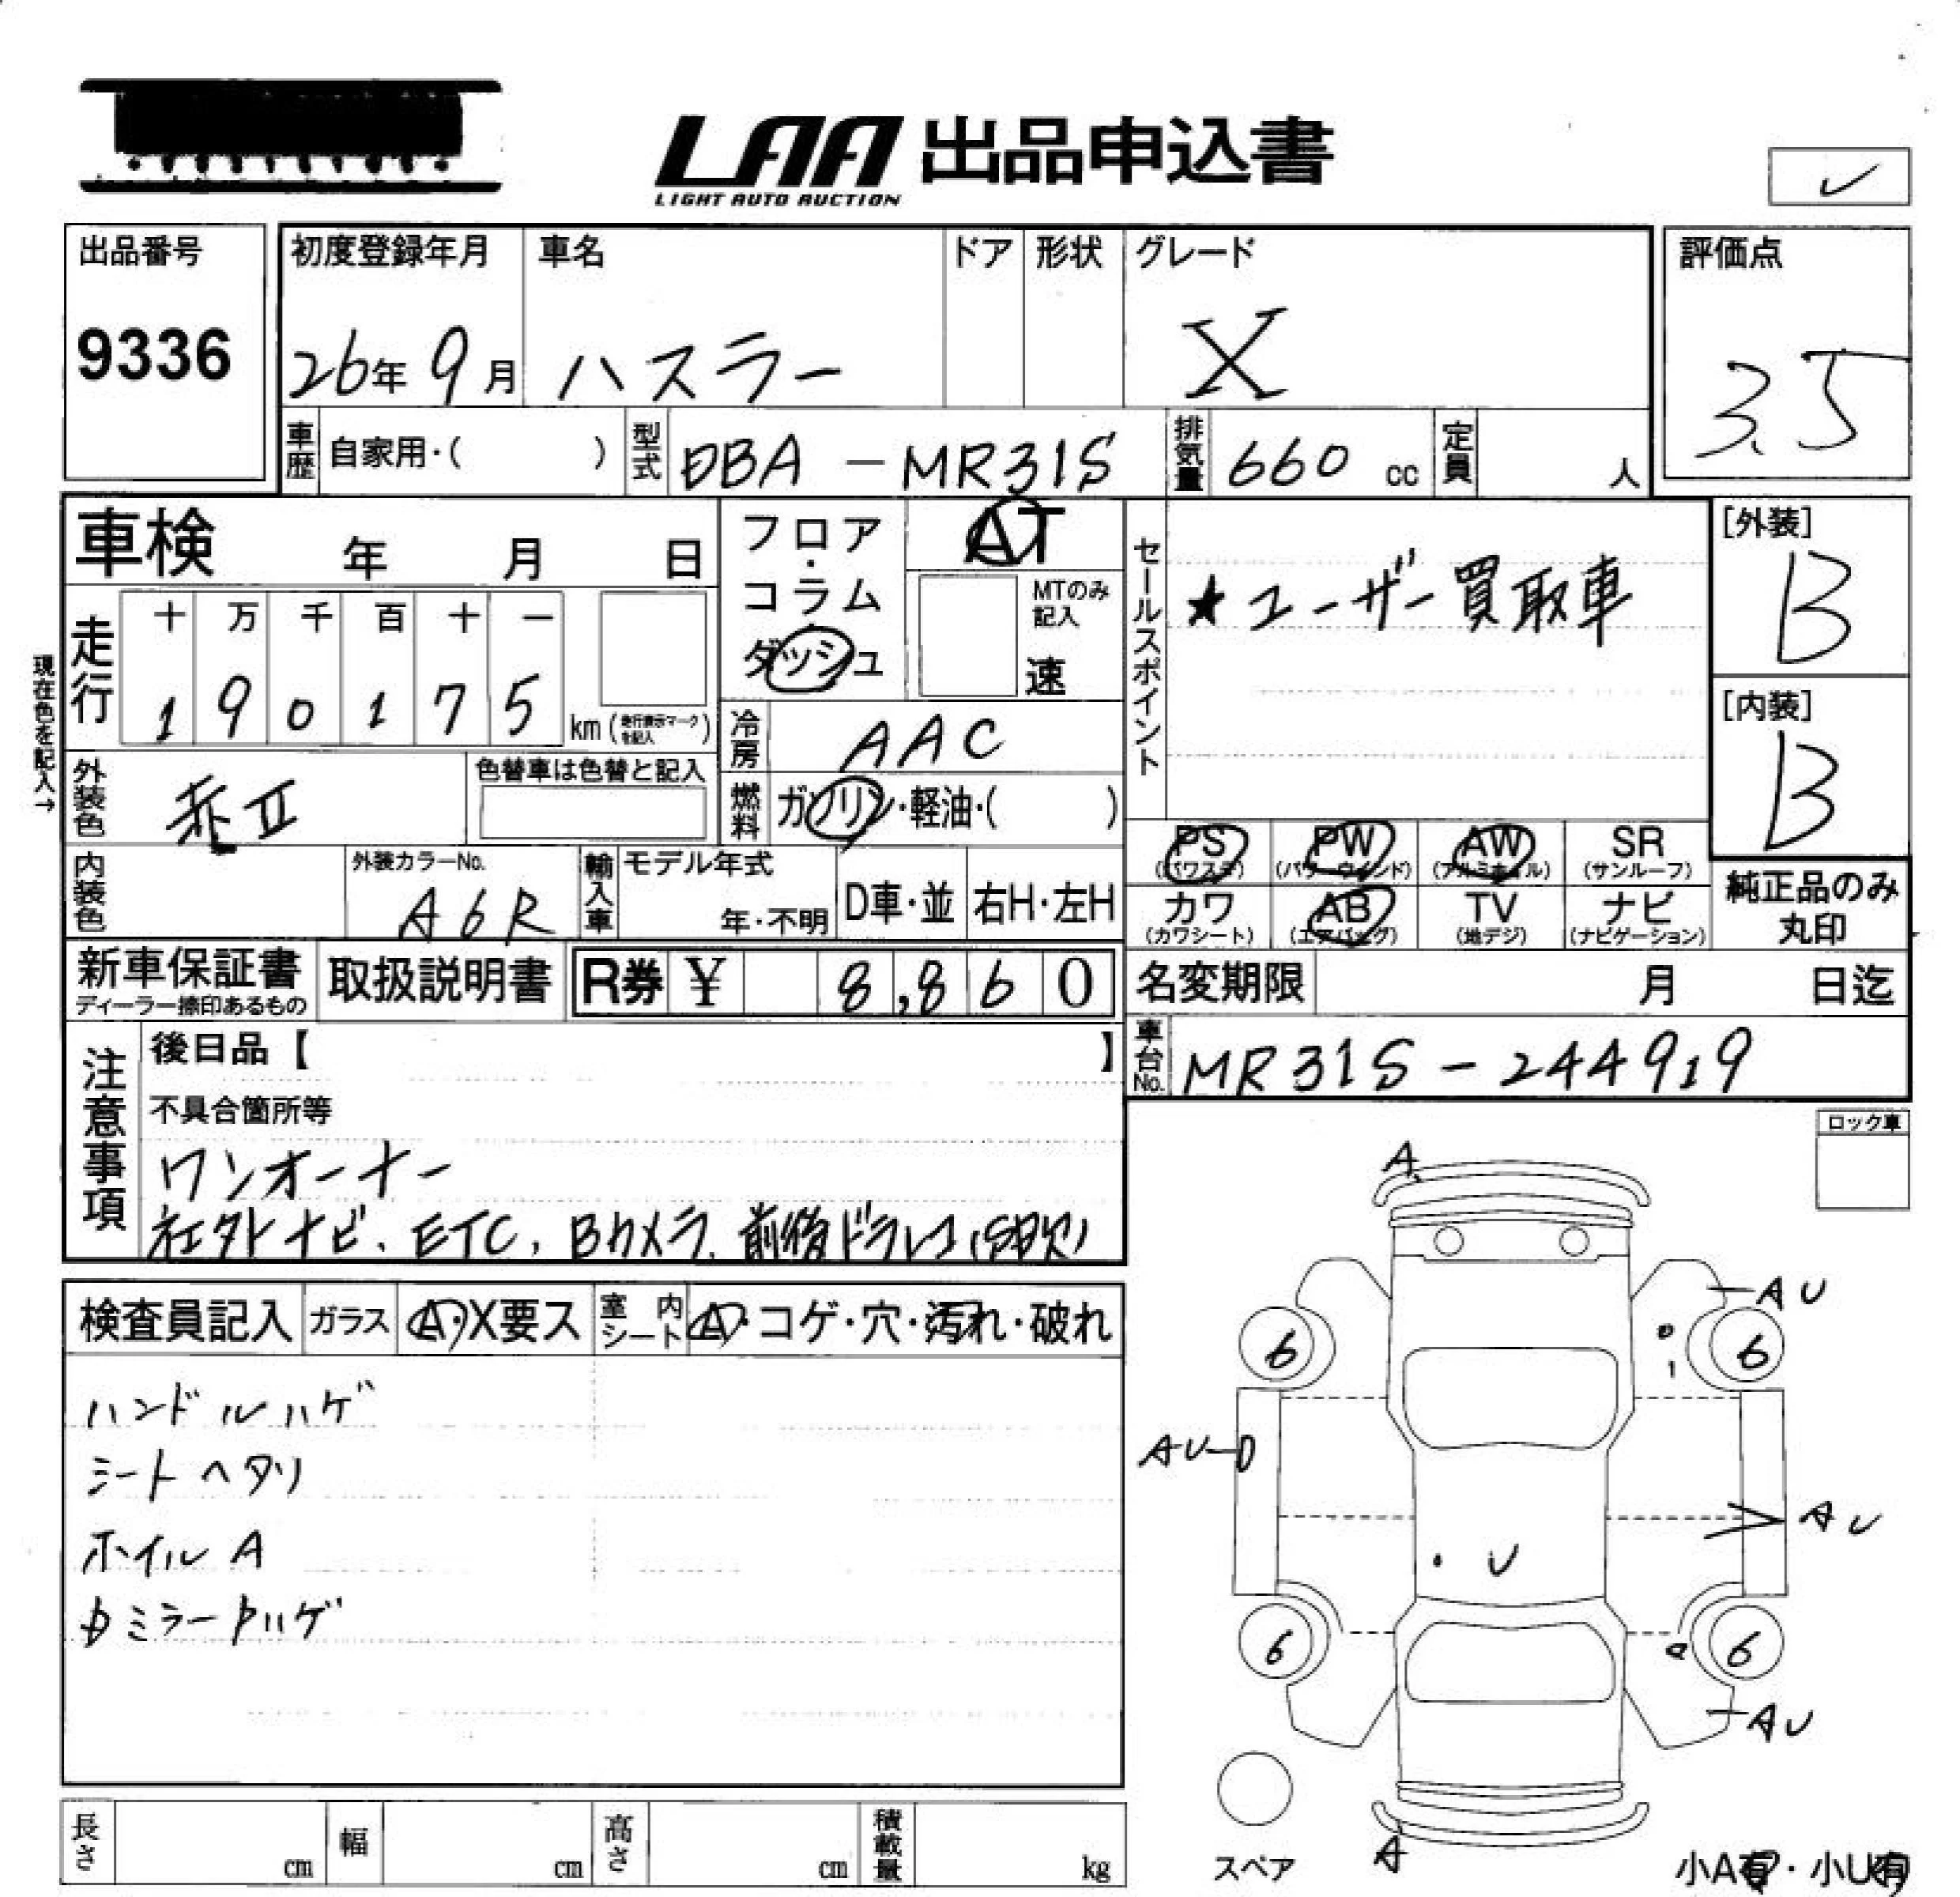 LAA 出品申込書
LIGHT AUTO AUCTION
出品番号
9336
初度登録年月
26年 9月
車名
ハスラー
ドア
形状
グレード
X
評価点
3.5
車歴 自家用・( )
型式 DBA-MR31S
排気量 660 cc
定員 人
車検 年 月 日
フロア・コラム ダッシュ
AT
MTのみ記入
速
セールスポイント
★ユーザー買取車
[外装]
B
[内装]
B
現在色を記入→
走行
十 万 千 百 十 一
1 9 0 1 7 5 km (走行表示マークを記入)
冷房 AAC
外装色 赤II
色替車は色替と記入
燃料 ガソリン・軽油・( )
内装色
外装カラーNo.
A6R
輸入車
モデル年式
年・不明
D車・並
右H・左H
PS (パワステ)
PW (パワーウィンド)
AW (アルミホイル)
SR (サンルーフ)
カワ (カワシート)
AB (エアバッグ)
TV (地デジ)
ナビ (ナビゲーション)
純正品のみ丸印
新車保証書
ディーラー捺印あるもの
取扱説明書
R券 ¥ 8,860
名変期限 月 日迄
車台No. MR31S-244919
注意事項
後日品【 】
不具合箇所等
ワンオーナー
社外ナビ、ETC、Bカメラ、前後ドラレコ(SD欠)
ロック車
検査員記入
ガラス A・X要ス
室内シート A・コゲ・穴・汚れ・破れ
ハンドルハゲ
シートヘタリ
ホイルA
ミラーハゲ
A
AU
6
6
AU
AU
U
6
6
AU
A
スペア
小A有・小U有
長さ cm
幅 cm
高さ cm
積載量 kg